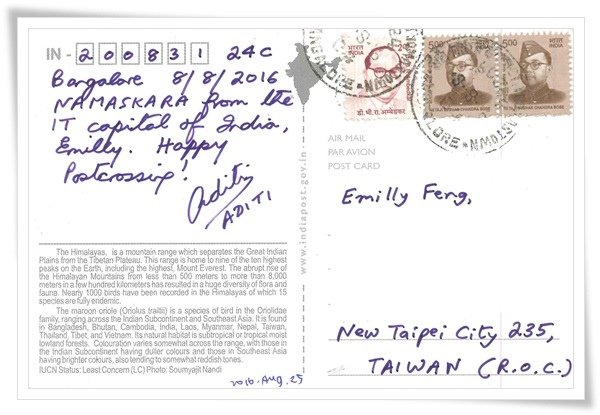 IN - 200831 24C
Bangalore 8/8/2016
NAMASKARA from the
IT capital of India,
Emilly. Happy
Postcrossing!
Aditi
ADITI
The Himalayas, is a mountain range which separates the Great Indian
Plains from the Tibetan Plateau. This range is home to nine of the ten highest
peaks on the Earth, including the highest, Mount Everest. The abrupt rise of
the Himalayan Mountains from less than 500 meters to more than 8,000
meters in a few hundred kilometers has resulted in a huge diversity of flora and
fauna. Nearly 1000 birds have been recorded in the Himalayas of which 15
species are fully endemic.
The maroon oriole (Oriolus traillii) is a species of bird in the Oriolidae
family, ranging across the Indian Subcontinent and Southeast Asia. It is found
in Bangladesh, Bhutan, Cambodia, India, Laos, Myanmar, Nepal, Taiwan,
Thailand, Tibet, and Vietnam. Its natural habitat is subtropical or tropical moist
lowland forests. Colouration varies somewhat across the range, with those in
the Indian Subcontinent having duller colours and those in Southeast Asia
having brighter colours, also tending to somewhat reddish tones.
IUCN Status: Least Concern (LC) Photo: Soumyajit Nandi
2016.Aug.25
www.indiapost.gov.in
भारत
INDIA
डॉ. भी. रा. अम्बेडकर
500
भारत
INDIA
NETAJI SUBHAS CHANDRA BOSE
500
भारत
INDIA
NETAJI SUBHAS CHANDRA BOSE
AIR MAIL
PAR AVION
POST CARD
Emilly Feng,
New Taipei City 235,
TAIWAN (R.O.C.)